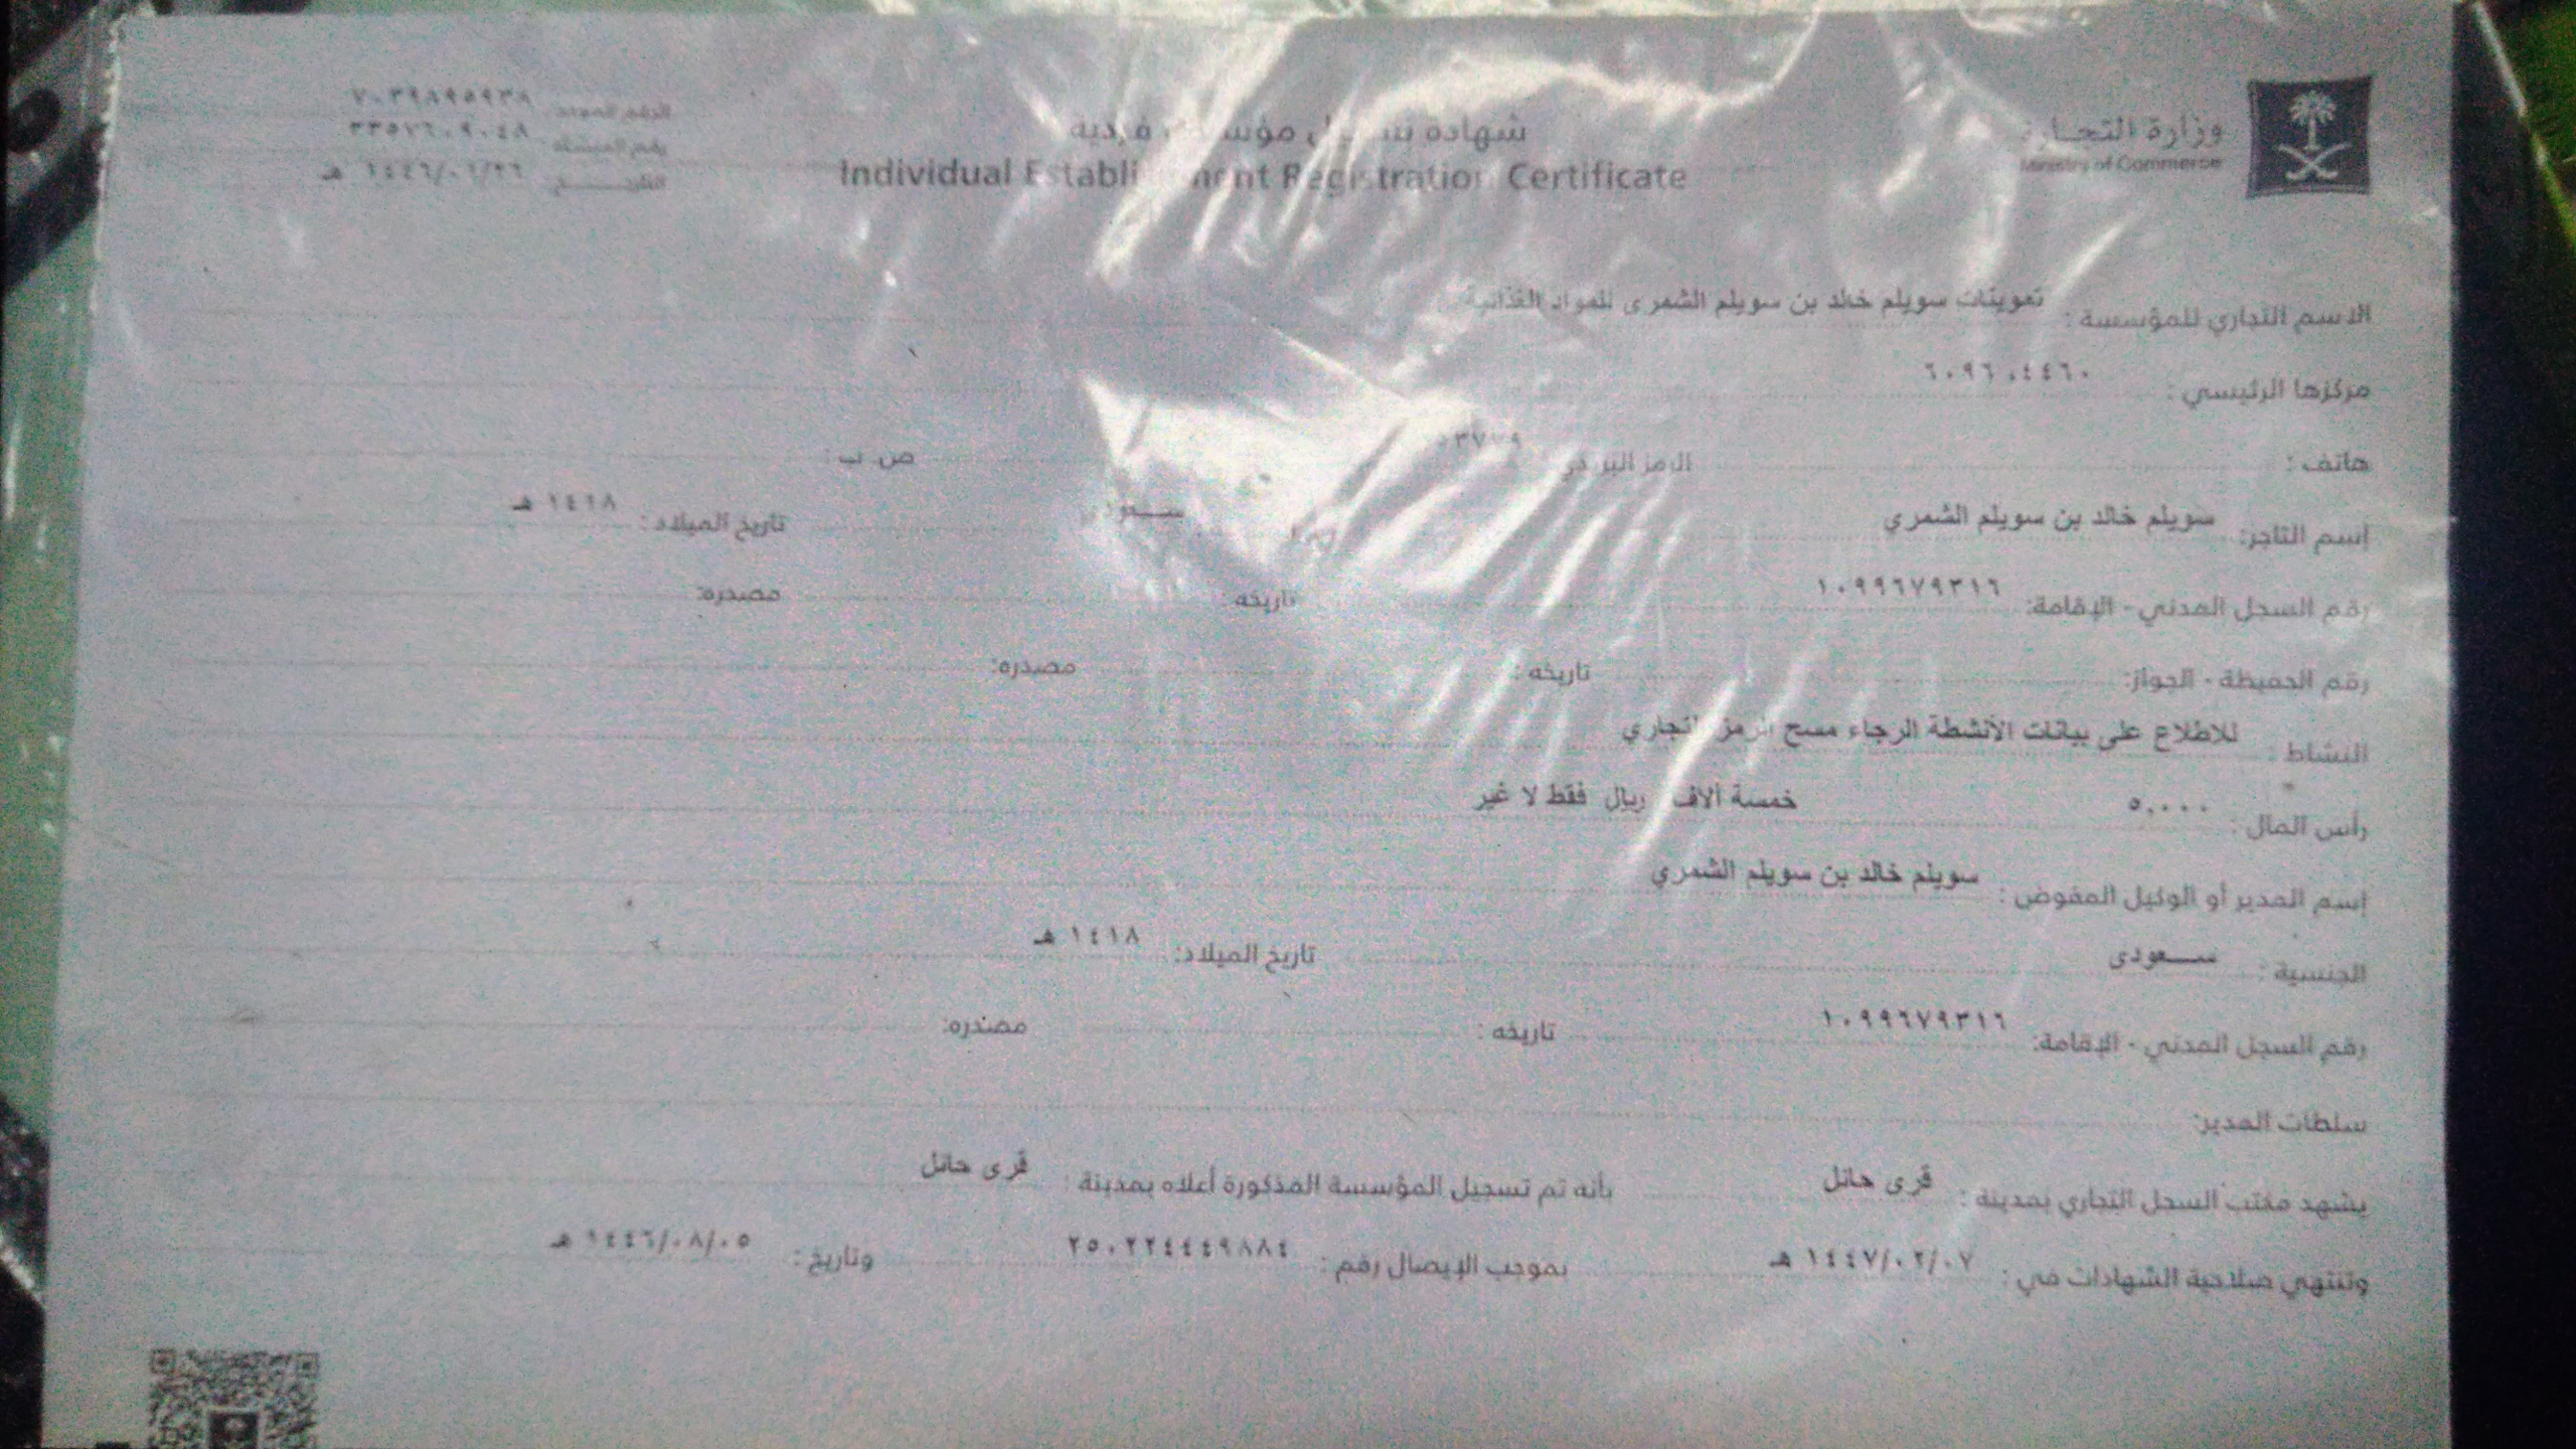 وزارة التجارة
Ministry of Commerce
شهادة تسجيل مؤسسة فردية
Individual Establishment Registration Certificate
الرقم الموحد ٧٠٣٩٨٩٥٩٣٨
رقم المنشأة
التاريخ هـ
الاسم التجاري للمؤسسة : تموينات سويلم خالد بن سويلم الشمرى للمواد الغذائية
مركزها الرئيسي : ٦٠٩٦٠٤٤٦٠
هاتف : الرمز البريدي ص. ب :
إسم التاجر: سويلم خالد بن سويلم الشمري سـعودي تاريخ الميلاد : ١٤١٨ هـ
رقم السجل المدني - الإقامة: ١٠٩٩٦٧٩٣١٦ تاريخه : مصدره:
رقم الحفيظة - الجواز: تاريخه : مصدره:
النشاط : للاطلاع على بيانات الأنشطة الرجاء مسح الرمز التجاري
رأس المال : ٥,٠٠٠ خمسة آلاف ريال فقط لا غير
إسم المدير أو الوكيل المفوض : سويلم خالد بن سويلم الشمري
الجنسية : سـعودى تاريخ الميلاد: ١٤١٨ هـ
رقم السجل المدني - الإقامة: ١٠٩٩٦٧٩٣١٦ تاريخه : مصدره:
سلطات المدير:
يشهد مكتب السجل التجاري بمدينة : قرى حائل بأنه تم تسجيل المؤسسة المذكورة أعلاه بمدينة : قرى حائل
وتنتهي صلاحية الشهادات في : ١٤٤٧/٠٢/٠٧ هـ بموجب الإيصال رقم : ٢٥٠٢٢٤٤٤٩٨٨٤ وتاريخ : ١٤٤٦/٠٨/٠٥ هـ